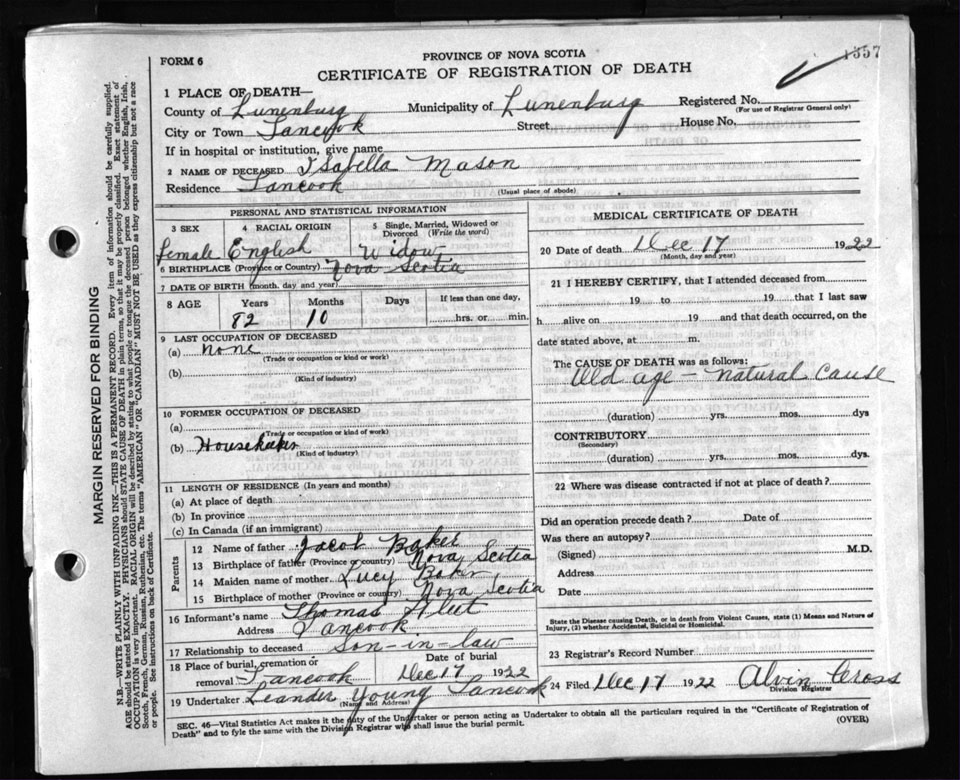 1357
FORM 6
PROVINCE OF NOVA SCOTIA
CERTIFICATE OF REGISTRATION OF DEATH
1 PLACE OF DEATH—
County of Lunenburg Municipality of Lunenburg Registered No.
(For use of Registrar General only)
City or Town Tancook Street House No.
If in hospital or institution, give name
2 NAME OF DECEASED Isabella Mason
Residence Tancook
(Usual place of abode)
PERSONAL AND STATISTICAL INFORMATION
3 SEX 4 RACIAL ORIGIN 5 Single, Married, Widowed or Divorced (Write the word)
female English Widow
6 BIRTHPLACE (Province or Country) Nova Scotia
7 DATE OF BIRTH (month, day and year)
8 AGE Years Months Days If less than one day,
82 10 hrs. or min.
9 LAST OCCUPATION OF DECEASED
(a) none
(Trade or occupation or kind or work)
(b)
(Kind of industry)
10 FORMER OCCUPATION OF DECEASED
(a)
(Trade or occupation or kind of work)
(b)
(Kind of industry)
11 LENGTH OF RESIDENCE (In years and months)
(a) At place of death
(b) In province
(c) In Canada (if an immigrant)
Parents
12 Name of father Jacob Baker
13 Birthplace of father (Province or country) Nova Scotia
14 Maiden name of mother Lucy
15 Birthplace of mother (Province or country) Nova Scotia
16 Informant's name Thomas
Address Tancook
17 Relationship to deceased Son-in-law
18 Place of burial, cremation or removal Tancook Date of burial Dec 17 1922
19 Undertaker Leander Young Tancook
(Name and Address)
MEDICAL CERTIFICATE OF DEATH
20 Date of death Dec 17 1922
(Month, day and year)
21 I HEREBY CERTIFY, that I attended deceased from
19 to 19 that I last saw
h alive on 19 and that death occurred, on the
date stated above, at m.
The CAUSE OF DEATH was as follows:
Old age - natural cause
(duration) yrs. mos. dys
CONTRIBUTORY
(Secondary)
(duration) yrs. mos. dys.
22 Where was disease contracted if not at place of death?
Did an operation precede death? Date of
Was there an autopsy?
(Signed) M.D.
Address
Date
State the Disease causing Death, or in death from Violent Causes, state (1) Means and Nature of
Injury, (2) whether Accidental, Suicidal or Homicidal.
23 Registrar's Record Number
24 Filed Dec 17 1922 Alvin Cross
Division Registrar
SEC. 46—Vital Statistics Act makes it the duty of the Undertaker or person acting as Undertaker to obtain all the particulars required in the "Certificate of Registration of
Death" and to fyle the same with the Division Registrar who shall issue the burial permit. (OVER)
MARGIN RESERVED FOR BINDING
N.B.—WRITE PLAINLY WITH UNFADING INK—THIS IS A PERMANENT RECORD. Every item of information should be carefully supplied.
AGE should be stated EXACTLY. PHYSICIANS should STATE CAUSE OF DEATH in plain terms, so that it may be properly classified. Exact statement of
OCCUPATION is very important. RACIAL ORIGIN will be described by stating to what people or tongue the deceased person belonged whether English, Irish,
Scotch, French, German, Russian, Ruthenian, etc. The terms "AMERICAN" OR "CANADIAN" MUST NOT BE USED as they express citizenship but not a race
or people. See instructions on back of Certificate.